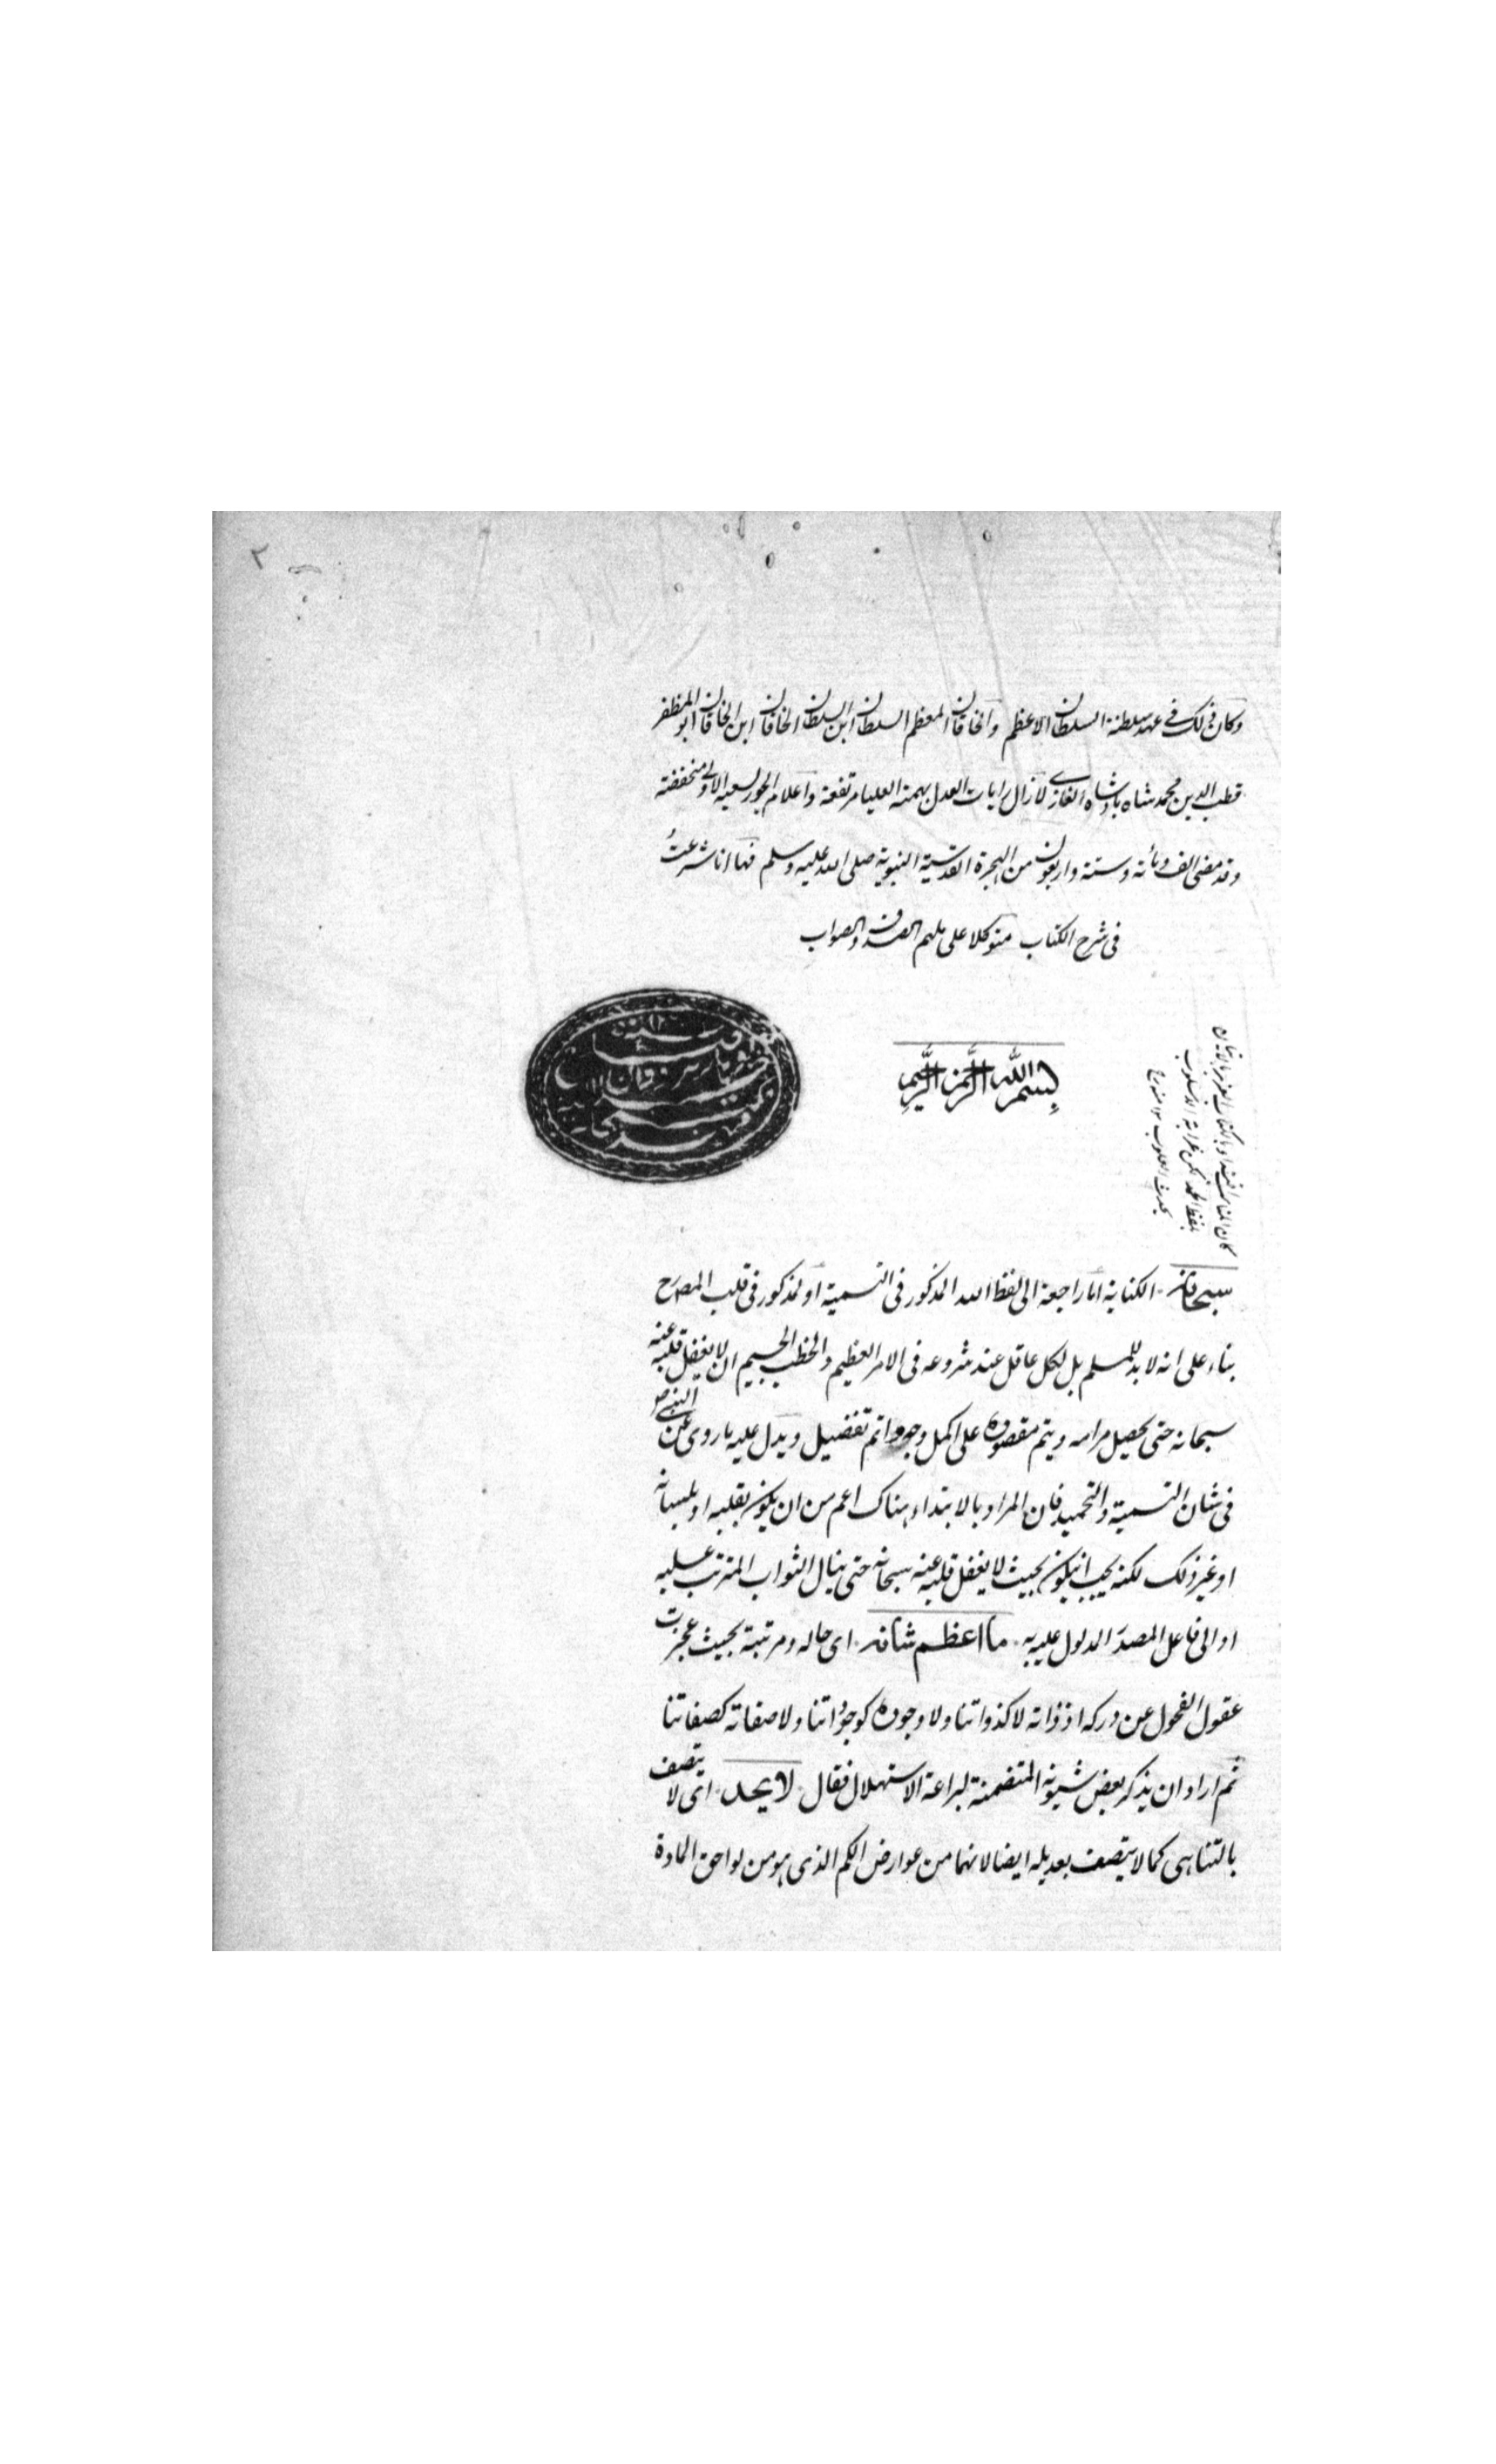 ٢
وكان ذلك في عهد سلطنة السلطان الاعظم والخاقان المعظم السلطان ابن السلطان الخاقان ابن الخاقان ابو المظفر
قطب الدين محمد شاه بادشاه الغازي لا زال رايات العدل بهمته العليا مرتفعة واعلام الجور لسعيه الاولى منخفضة
وقد مضى الف ومائه وستة واربعون من الهجرة القدسية النبوية صلى الله عليه وسلم فها انا شرعتُ
فى شرح الكتاب متوكلا على ملهم الصدق والصواب
بسم الله الرحمن الرحيم
سبحانه الكناية اما راجعة الى لفظ الله المذكور فى التسمية او المذكور فى قلب المصرح
بناء على انه لا بد للمسلم بل لكل عاقل عند شروعه فى الامر العظيم والخطب الجسيم ان لا يغفل قلبه عنه
سبحانه حتى يحصل مرامه ويتم مقصوده على اكمل وجه واتم تفضيل ويدل عليه ما روى عن النبي ص
فى شان التسمية والتحميد فان المراد بالابتداء هناك اعم من ان يكون بقلبه او بلسانه
او غير ذلك لكنه يجب ان يكون بحيث لا يغفل قلبه عنه سبحانه حتى ينال الثواب المترتب عليه
او الى فاعل المصدر المدلول عليه به ما اعظم شانه اى حاله ومرتبته بحيث عجزت
عقول الفحول عن دركه اذ ذاته لا كذواتنا ولا وجوده كوجوداتنا ولا صفاته كصفاتنا
ثم اراد ان يذكر بعض شيونه المتضمنة لبراعة الاستهلال فقال لا يحد اى لا يتصف
بالتناهى كما لا يتصف بعديله ايضا لانهما من عوارض الكم الذى هو من لواحق المادة